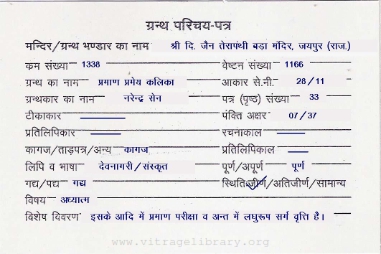 ग्रन्थ परिचय-पत्र
मन्दिर/ग्रन्थ भण्डार का नाम श्री दि. जैन तेरापंथी बड़ा मंदिर, जयपुर (राज.)
क्रम संख्या 1338 वेष्टन संख्या 1166
ग्रन्थ का नाम प्रमाण प्रमेय कलिका आकार से.मी. 28/11
ग्रन्थकार का नाम नरेन्द्र सेन पत्र (पृष्ठ) संख्या 33
टीकाकार पंक्ति अक्षर 07/37
प्रतिलिपिकार रचनाकाल
कागज/ताड़पत्र/अन्य कागज प्रतिलिपिकाल
लिपि व भाषा देवनागरी/संस्कृत पूर्ण/अपूर्ण पूर्ण
गद्य/पद्य गद्य स्थिति जीर्ण/अतिजीर्ण/सामान्य
विषय अध्यात्म
विशेष विवरण इसके आदि में प्रमाण परीक्षा व अन्त में लघुरूप सर्ग वृत्ति है।
www.vitragelibrary.org